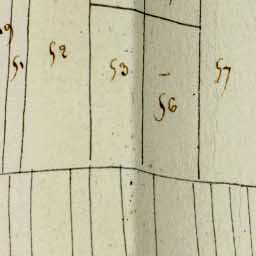 51
52
53
56
57